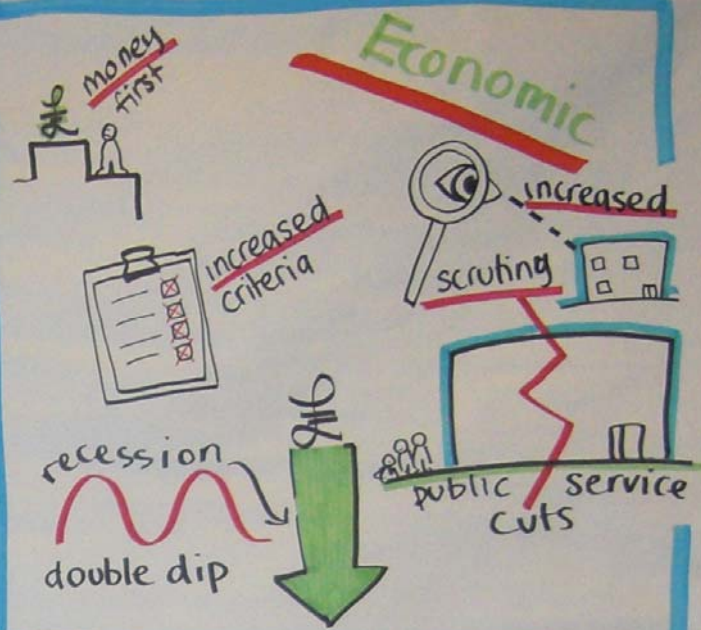 Economic
money
first
increased
criteria
increased
scruting
recession
double dip
public service
cuts